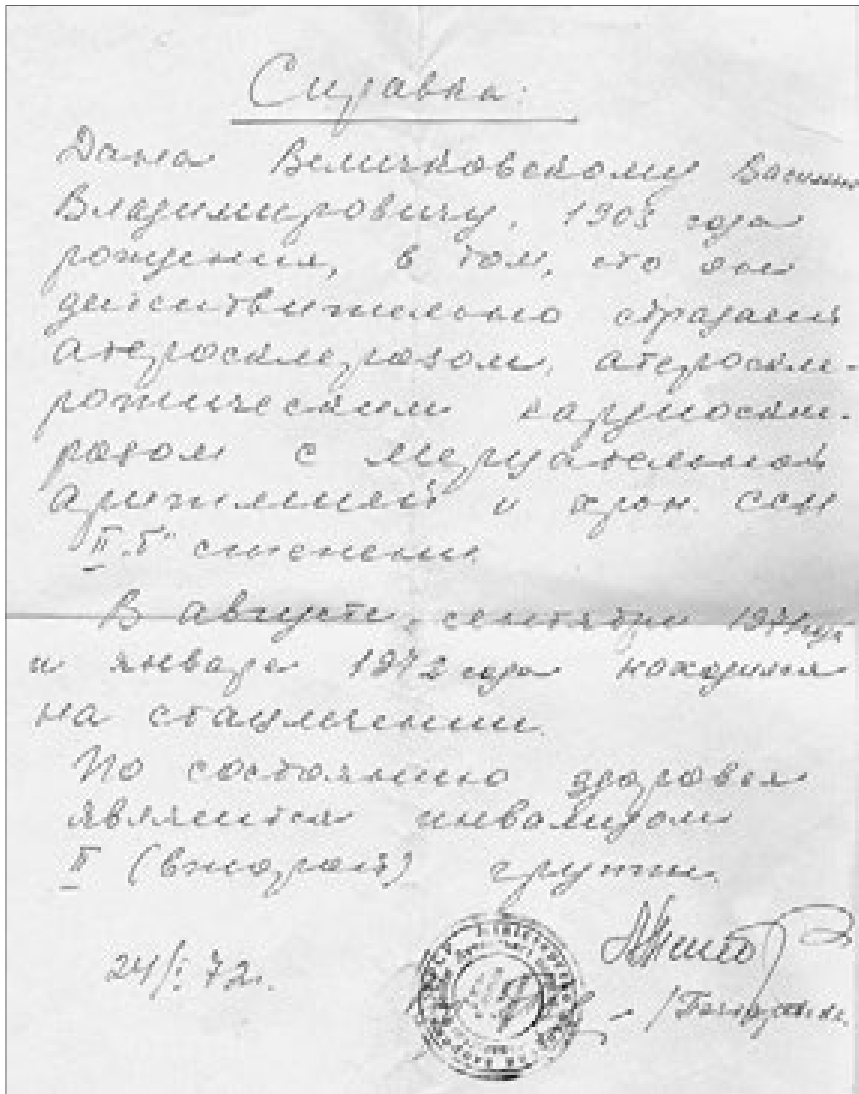 Справка:
Дана Величковскому Василию
Владимировичу, 1903 года
рождения, в том, что он
действительно страдает
атеросклерозом, атероскле-
ротическим кардиоскле-
розом с мерцательной
аритмией и хрон. ССН
II "Б" степени.
В августе, сентябре 1971 года
и январе 1972 года находился
на стацлечении.
По состоянию здоровья
является инвалидом
II (второй) группы.
24/I 72г.